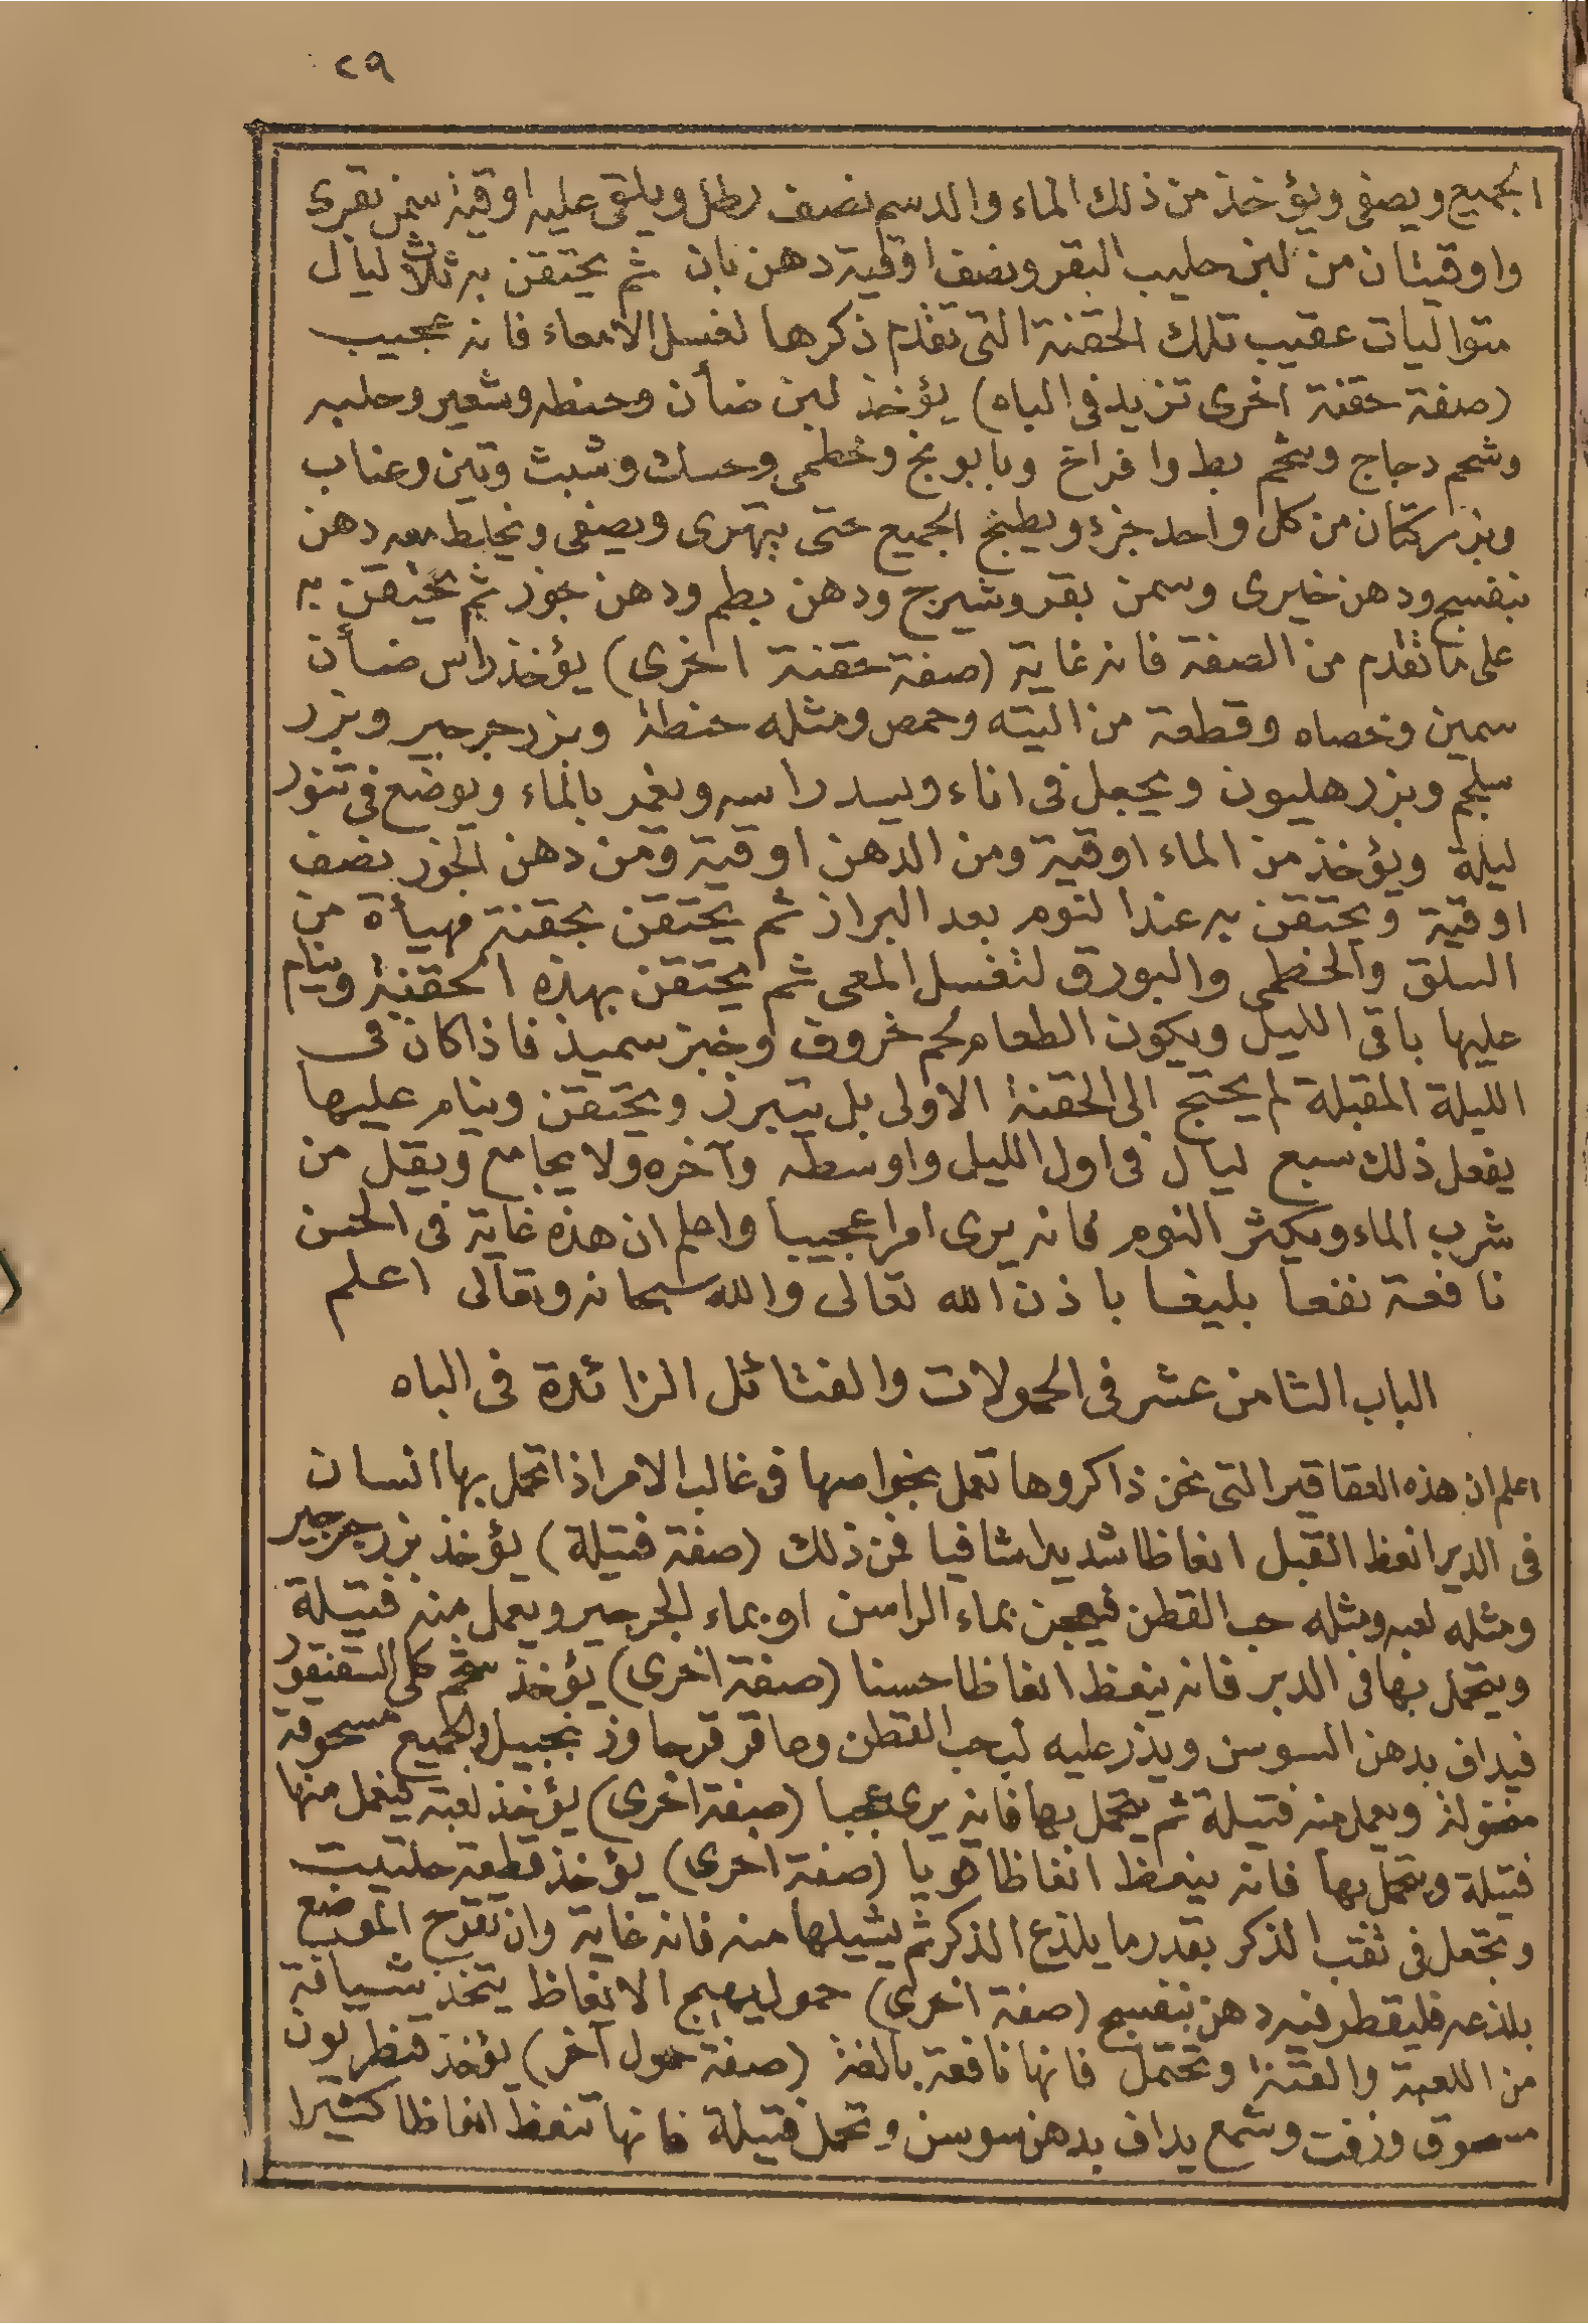 ٢٩
الجميع ويصفى ويؤخذ من ذلك الماء والدسم نصف رطل ويلقى عليه اوقية سمن بقرى
واوقيتان من لبن حليب البقر ونصف اوقية دهن بان ثم يحتقن به ثلاث ليال
متواليات عقيب تلك الحقنة التى تقدم ذكرها لغسل الامعاء فانه عجيب
(صفة حقنة اخرى تزيد فى الباه) يؤخذ لبن ضأن وحنطه وشعير وحلبه
وشحم دجاج وشحم بط وافراخ وبابونج وخطمى وحسك وشبث وتين وعناب
وبزر كتان من كل واحد جزء ويطبخ الجميع حتى يتهرى ويصفى ويخلط معه دهن
بنفسج ودهن خيرى وسمن بقر وشيرج ودهن بطم ودهن جوز ثم يحتقن به
على ما تقدم من الصفة فانه غاية (صفة حقنة اخرى) يؤخذ راس ضأن
سمين وخصاه وقطعة من اليته وحمص ومثله حنطة وبزر جرجير وبزر
سلجم وبزر هليون ويجعل فى اناء ويسد راسه ويغمر بالماء ويوضع فى تنور
ليلة ويؤخذ من الماء اوقية ومن الدهن اوقية ومن دهن الجوز نصف
اوقية ويحتقن به عند النوم بعد البراز ثم يحتقن بحقنة مهيأة من
السلق والخطمى والبورق لتغسل المعى ثم يحتقن بهذه الحقنة وينام
عليها باقى الليل ويكون الطعام لحم خروف وخبز سميذ فاذا كان فى
الليلة المقبلة لم يحتج الى الحقنة الاولى بل يتبرز ويحتقن وينام عليها
يفعل ذلك سبع ليال فى اول الليل واوسطه وآخره ولا يجامع ويقل من
شرب الماء ويكثر النوم فانه يرى امرا عجيبا واعلم ان هذه غاية فى الحسن
نافعة نفعا بليغا باذن الله تعالى والله سبحانه وتعالى اعلم
الباب الثامن عشر فى الحمولات والفتائل الزائدة فى الباه
اعلم ان هذه العقاقير التى نحن ذاكروها تعمل بخواصها فى غالب الامر اذا تحمل بها انسان
فى الدبر انعظ القبل انعاظا شديدا شافيا فمن ذلك (صفة فتيلة) يؤخذ بزر جرجير
ومثله لعبه ومثله حب القطن فيعجن بماء الراسن او بماء الجرجير ويعمل منه فتيلة
ويتحمل بها فى الدبر فانه ينعظ انعاظا حسنا (صفة اخرى) يؤخذ شحم كلى السقنقور
فيداف بدهن السوسن ويذر عليه لب حب القطن وعاقرقرحا وزنجبيل والجميع مسحوقة
منخولة ويعمل منه فتيلة ثم يتحمل بها فانه يرى عجبا (صفة اخرى) يؤخذ لعبة فيعمل منها
فتيلة ويتحمل بها فانه ينعظ انعاظا قويا (صفة اخرى) يؤخذ قطعة حلتيت
وتجعل فى ثقب الذكر بقدر ما يلذع الذكر ثم يشيلها منه فانه غاية وان تقرح الموضع
بلذعه فليقطر فيه دهن بنفسج (صفة اخرى) حمول يهيج الانعاظ يتخذ شيافة
من اللعبة والقنة وتحتمل فانها نافعة بالغة (صفة حمول آخر) يؤخذ قنطريون
مسحوق وزفت وشمع يداف بدهن سوسن وتحمل فتيلة فانها تنعظ انعاظا كثيرا